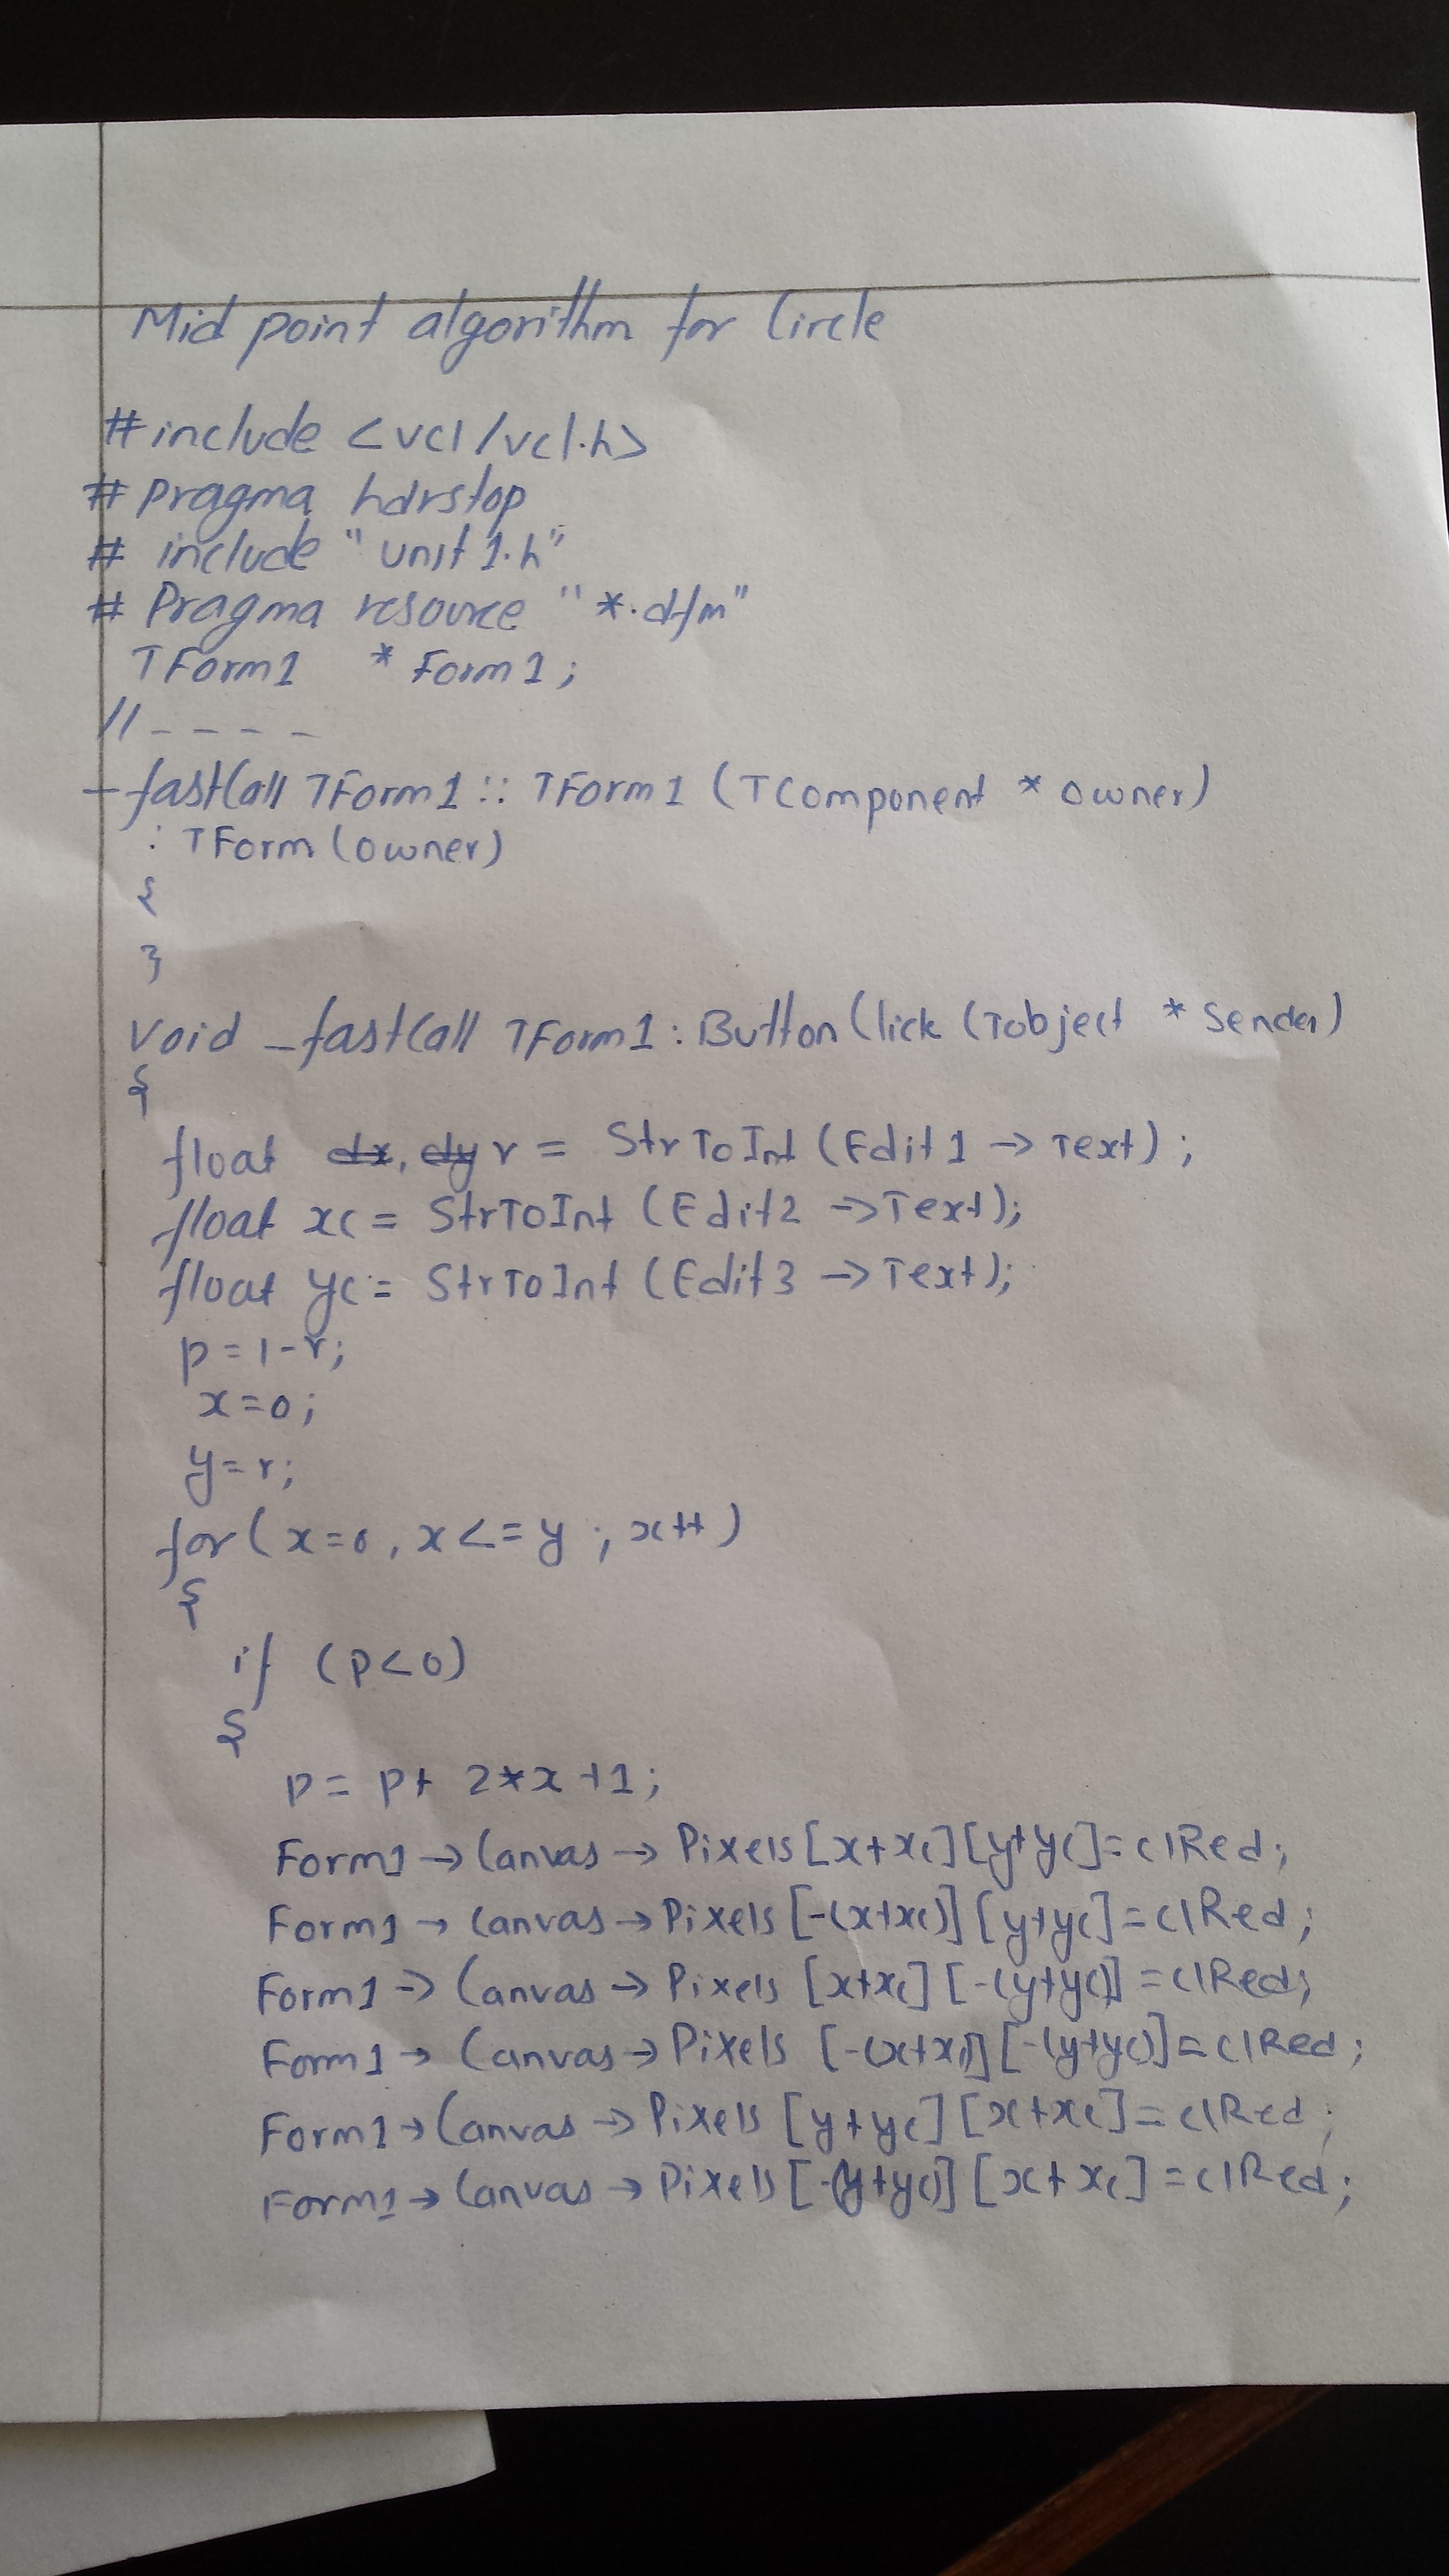 Mid point algorithm for Circle
#include <vcl/vcl.h>
# pragma hdrstop
# include "unit1.h"
# Pragma resource "*.dfm"
TForm1 * Form1;
//_ _ _ _
_fastCall TForm1:: TForm1 (TComponent * owner)
: TForm(owner)
{
}
void _fastCall TForm1:ButtonClick (Tobject * Sender)
{
float dx, dy r = StrToInt (Edit1 -> Text);
float xc = StrToInt (Edit2 ->Text);
float yc = StrToInt (Edit3 -> Text);
p=1-r;
x=0;
y=r;
for(x=0, x<=y ; x++)
{
if (p<0)
{
p= p+ 2*x+1;
Form1->Canvas->Pixels[x+xc][y+yc]=clRed;
Form1->Canvas->Pixels[-(x+xc)][y+yc]=clRed;
Form1->Canvas->Pixels [x+xc][-(y+yc)]=clRed;
Form1->Canvas->Pixels [-(x+xc)][-(y+yc)]=clRed;
Form1->Canvas->Pixels [y+yc][x+xc]=clRed;
Form1->Canvas->Pixels[-(y+yc)][x+xc]=clRed;